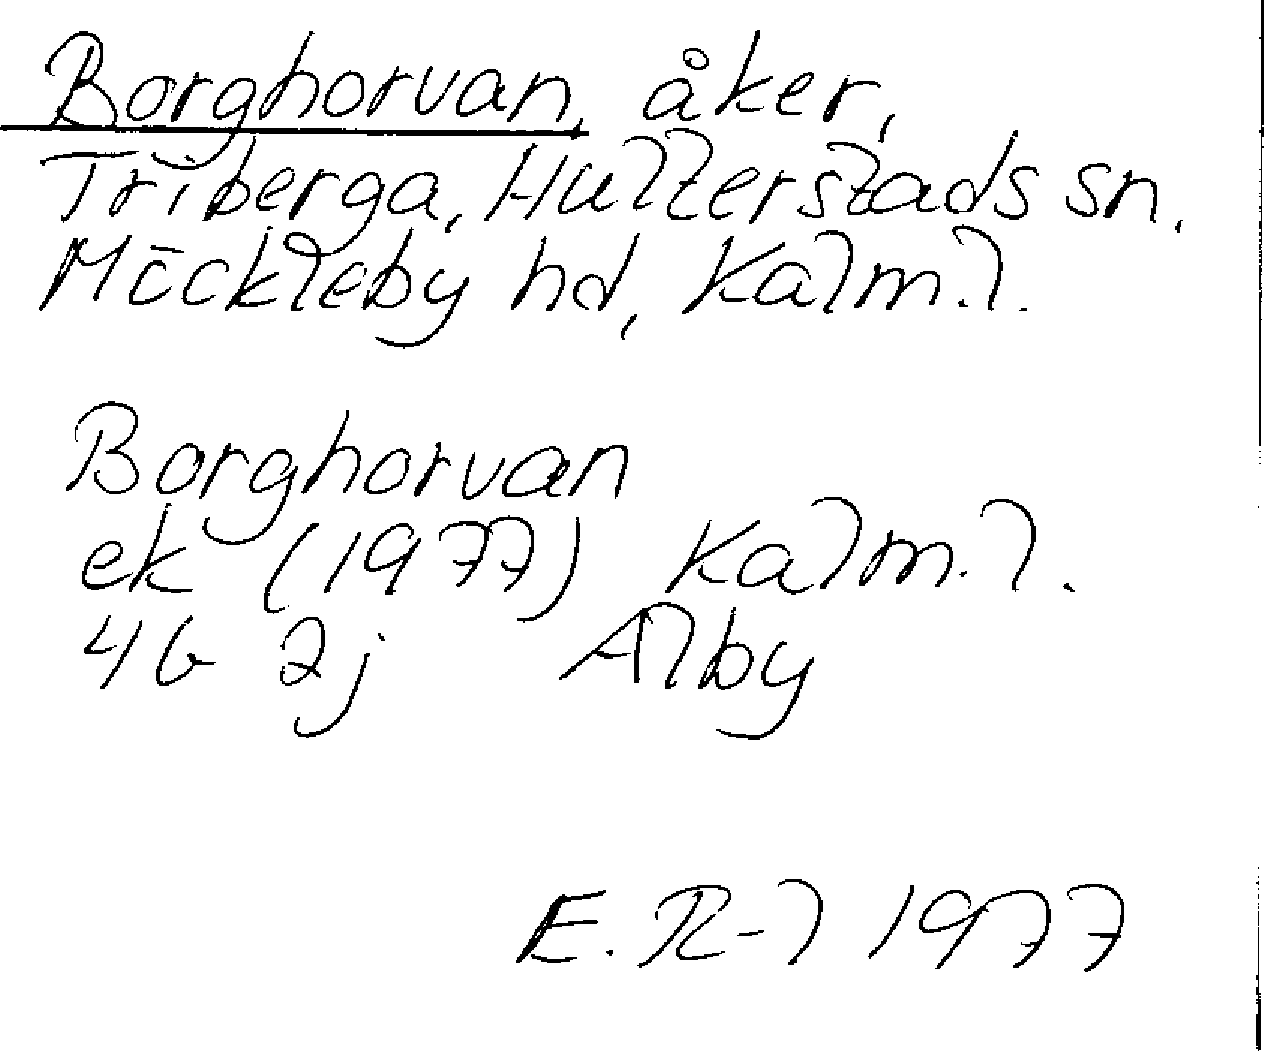 Borghorvan, åker,
Triberga, Hulterstads sn.
Möckleby hd, Kalm.l.
Borghorvan
ek (1977) Kalm.l.
4G 2j Alby
E. R-l 1977